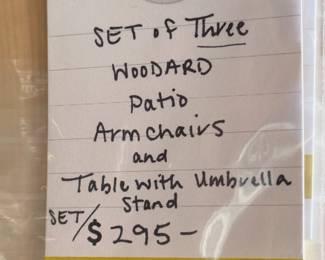 SET of Three
WOODARD
Patio
Armchairs
and
Table with Umbrella
Stand
SET/$295-